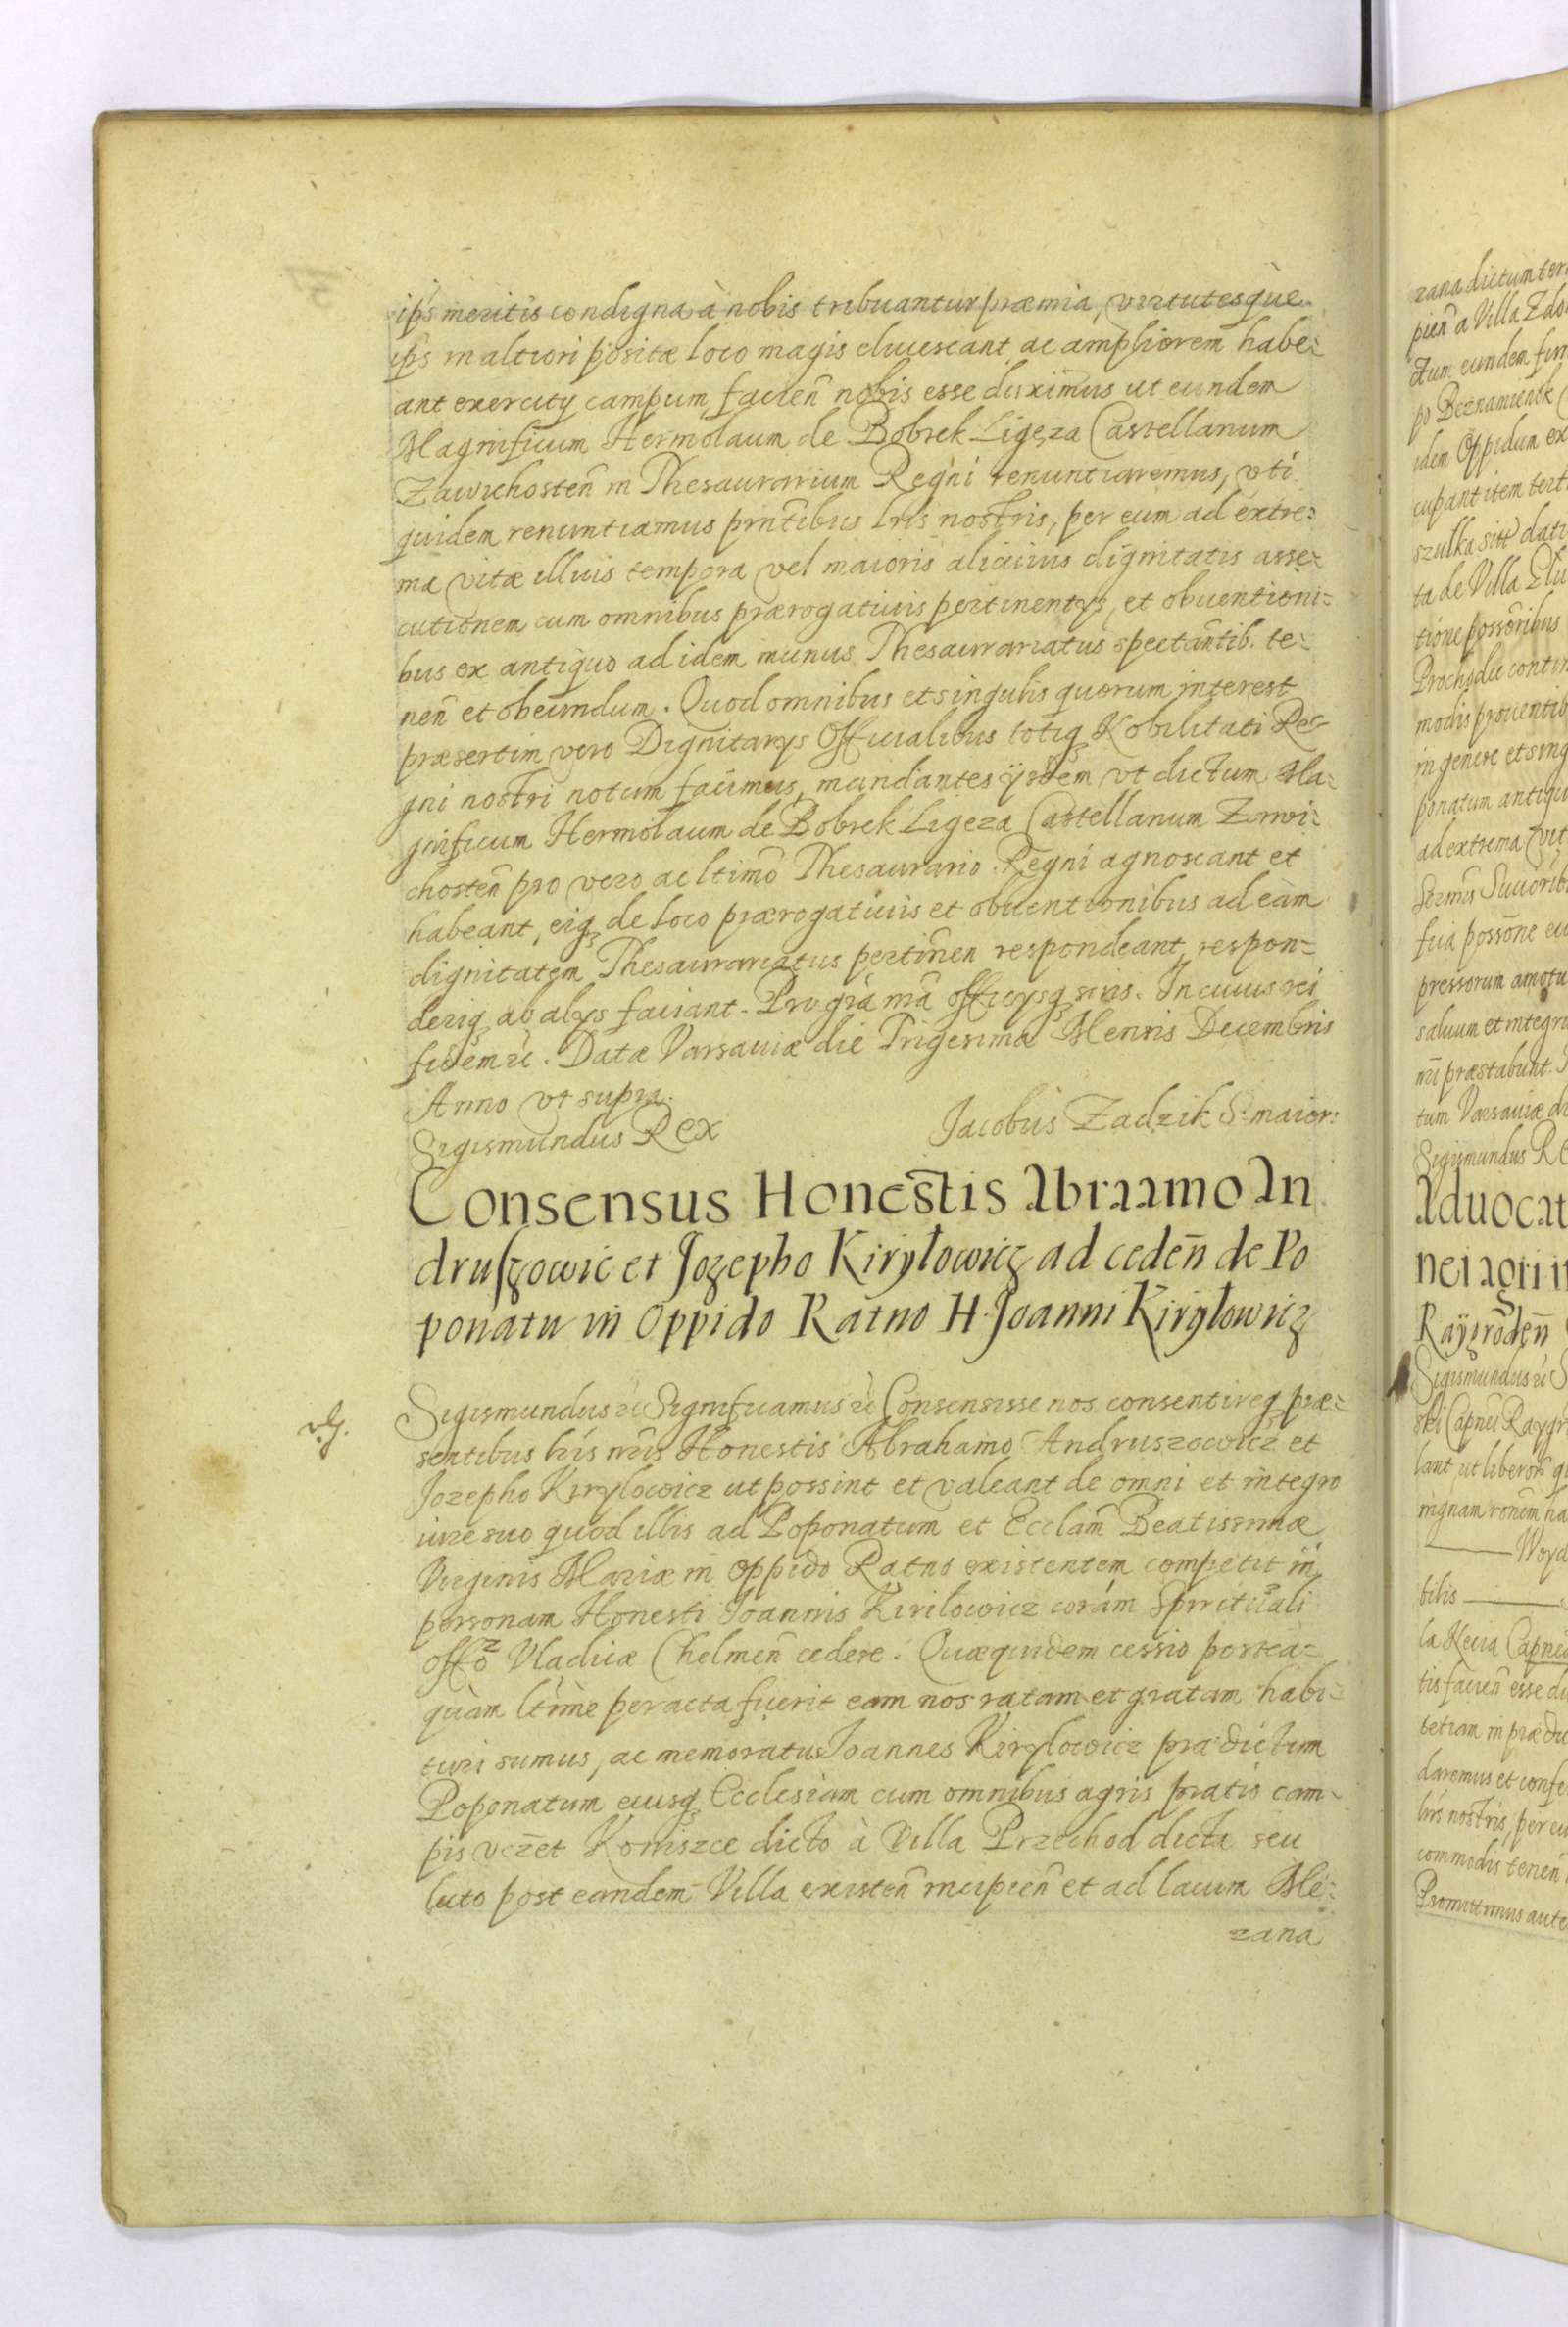 ips meritis condigna à nobis tribuantur præmia, virtutesque
ips in altiori positæ loco magis elucescant ac ampliorem habe-
ant exercitÿ campum, facien̄ nobis esse duximus ut eundem
Magnificum Hermolaum de Bobrek Ligęza Castellanum
Zawichosten̄ in Thesaurarium Regni renuntiaremus, vti
quidem renuntiamus pr̄ntibus lr̄is nostris, per eum ad extre-
ma vitæ illius tempora vel maioris alicuius dignitatis asse-
cutionem cum omnibus prærogativis pertinentÿs, et obuentioni-
bus ex antiquo ad idem munus Thesaurariatus spectantib. te-
nen̄ et obeundum. Quod omnibus et singulis quorum interest
præsertim vero Dignitarÿs Officialibus totiq̨ Nobilitati Re-
gni nostri notum facimus, mandantes ÿsdem vt dictum Ma-
gnificum Hermolaum de Bobrek Ligęza Castellanum Zawi-
chosten̄ pro vero ac ltimō Thesaurario Regni agnoscant et
habeant, eiq̨ de loco prærogativis et obuentionibus ad eam
dignitatem Thesaurariatus pertinen respondeant, respon-
deriq̨ ab alÿs faciant. Pro grā nrā officÿsq̨ suis. In cuius rei
fidem &c. Datæ Varsaviæ die Trigesima Mensis Decembris
Anno vt supra.
Sigismundus Rex Jacobus Zadzik S. maior:
Consensus Honestis Abraamo An
druszowic et Jozepho Kiryłowicz ad ceden̄ de Po
ponatu in Oppido Ratno H. Joanni Kiryłowicz
Sigismundus &c Significamus &c Consensisse nos consentireq̨ præ-
sentibus lr̄is nr̄is Honestis Abrahamo Andruszowicz et
Jozepho Kirylowicz ut possint et valeant de omni et integro
iure suo quod illis ad Poponatum et Eccla͞m Beatissimæ
Virginis Mariæ in Oppido Ratno existentem competit in
personam Honesti Joannis Kirilowicz coram Spirituali
Offo Vladicæ Chelmen̄ cedere. Quæquidem cessio postea-
quàm ltime peracta fuerit eam nos ratam et gratam habi-
turi sumus, ac memoratus Joannes Kirylowicz prædictum
Poponatum eiusq̨ Ecclesiam cum omnibus agris pratis cam-
pis vczet Koniszce dicto à Villa Przechod dicta seu
luto post eandem Villa existen̄ incipien̄ et ad lacum Me-
zana
zana dictum ter
pien̄ a Villa Zdo
ctum eundem fun
po Beznamienik
idem Oppidum ex
cupant item tert
szulka siue datu
ta de Villa
tione possoribus
modis prouentib
in genere et sing
ponatum antiqu
ad extrema vit
Sermis Succorib
sua possōne eu
pressorum amotu
saluum et integru
nr̄i præstabunt
tum Varsaviæ di
Sigismundus Re
Aduocat
nei agri i
Rayg
Sigismundus &c S
ski Capnei Raygr
lant ut liberos q
insignam ronem ha
Woyd
bilis
la Neua Capnei
tis facien̄ esse du
tetiam in prædi
daremus et confe
lris nostris, per eu
commodis tenen̄
Promittimus aute